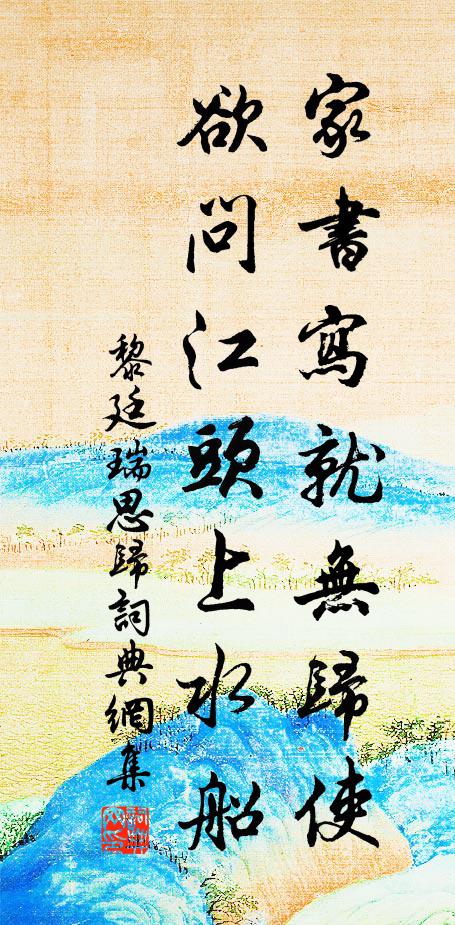 家書寫就無歸使
欲問江頭上水船
黎廷瑞思歸詞典網集